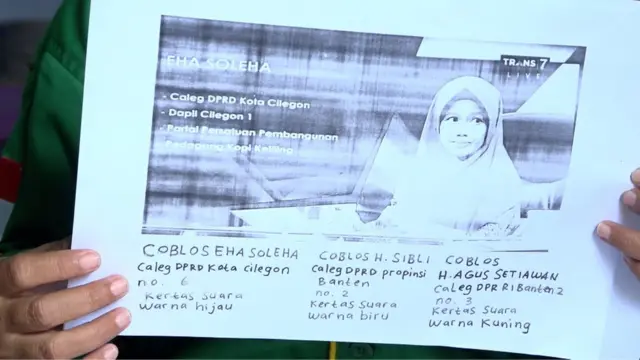 EHA SOLEHA
- Caleg DPRD Kota Cilegon
- Dapil Cilegon 1
- Partai Persatuan Pembangunan
- Pedagang Kopi Keliling
TRANS 7
LIVE
COBLOS EHA SOLEHA
Caleg DPRD Kota cilegon
no. 6
Kertas suara
warna hijau
COBLOS H. SIBLI
Caleg DPRD propinsi
Banten
no. 2
Kertas suara
warna biru
COBLOS
H. AGUS SETIAWAN
Caleg DPR RI Banten 2
no. 3
Kertas suara
Warna Kuning